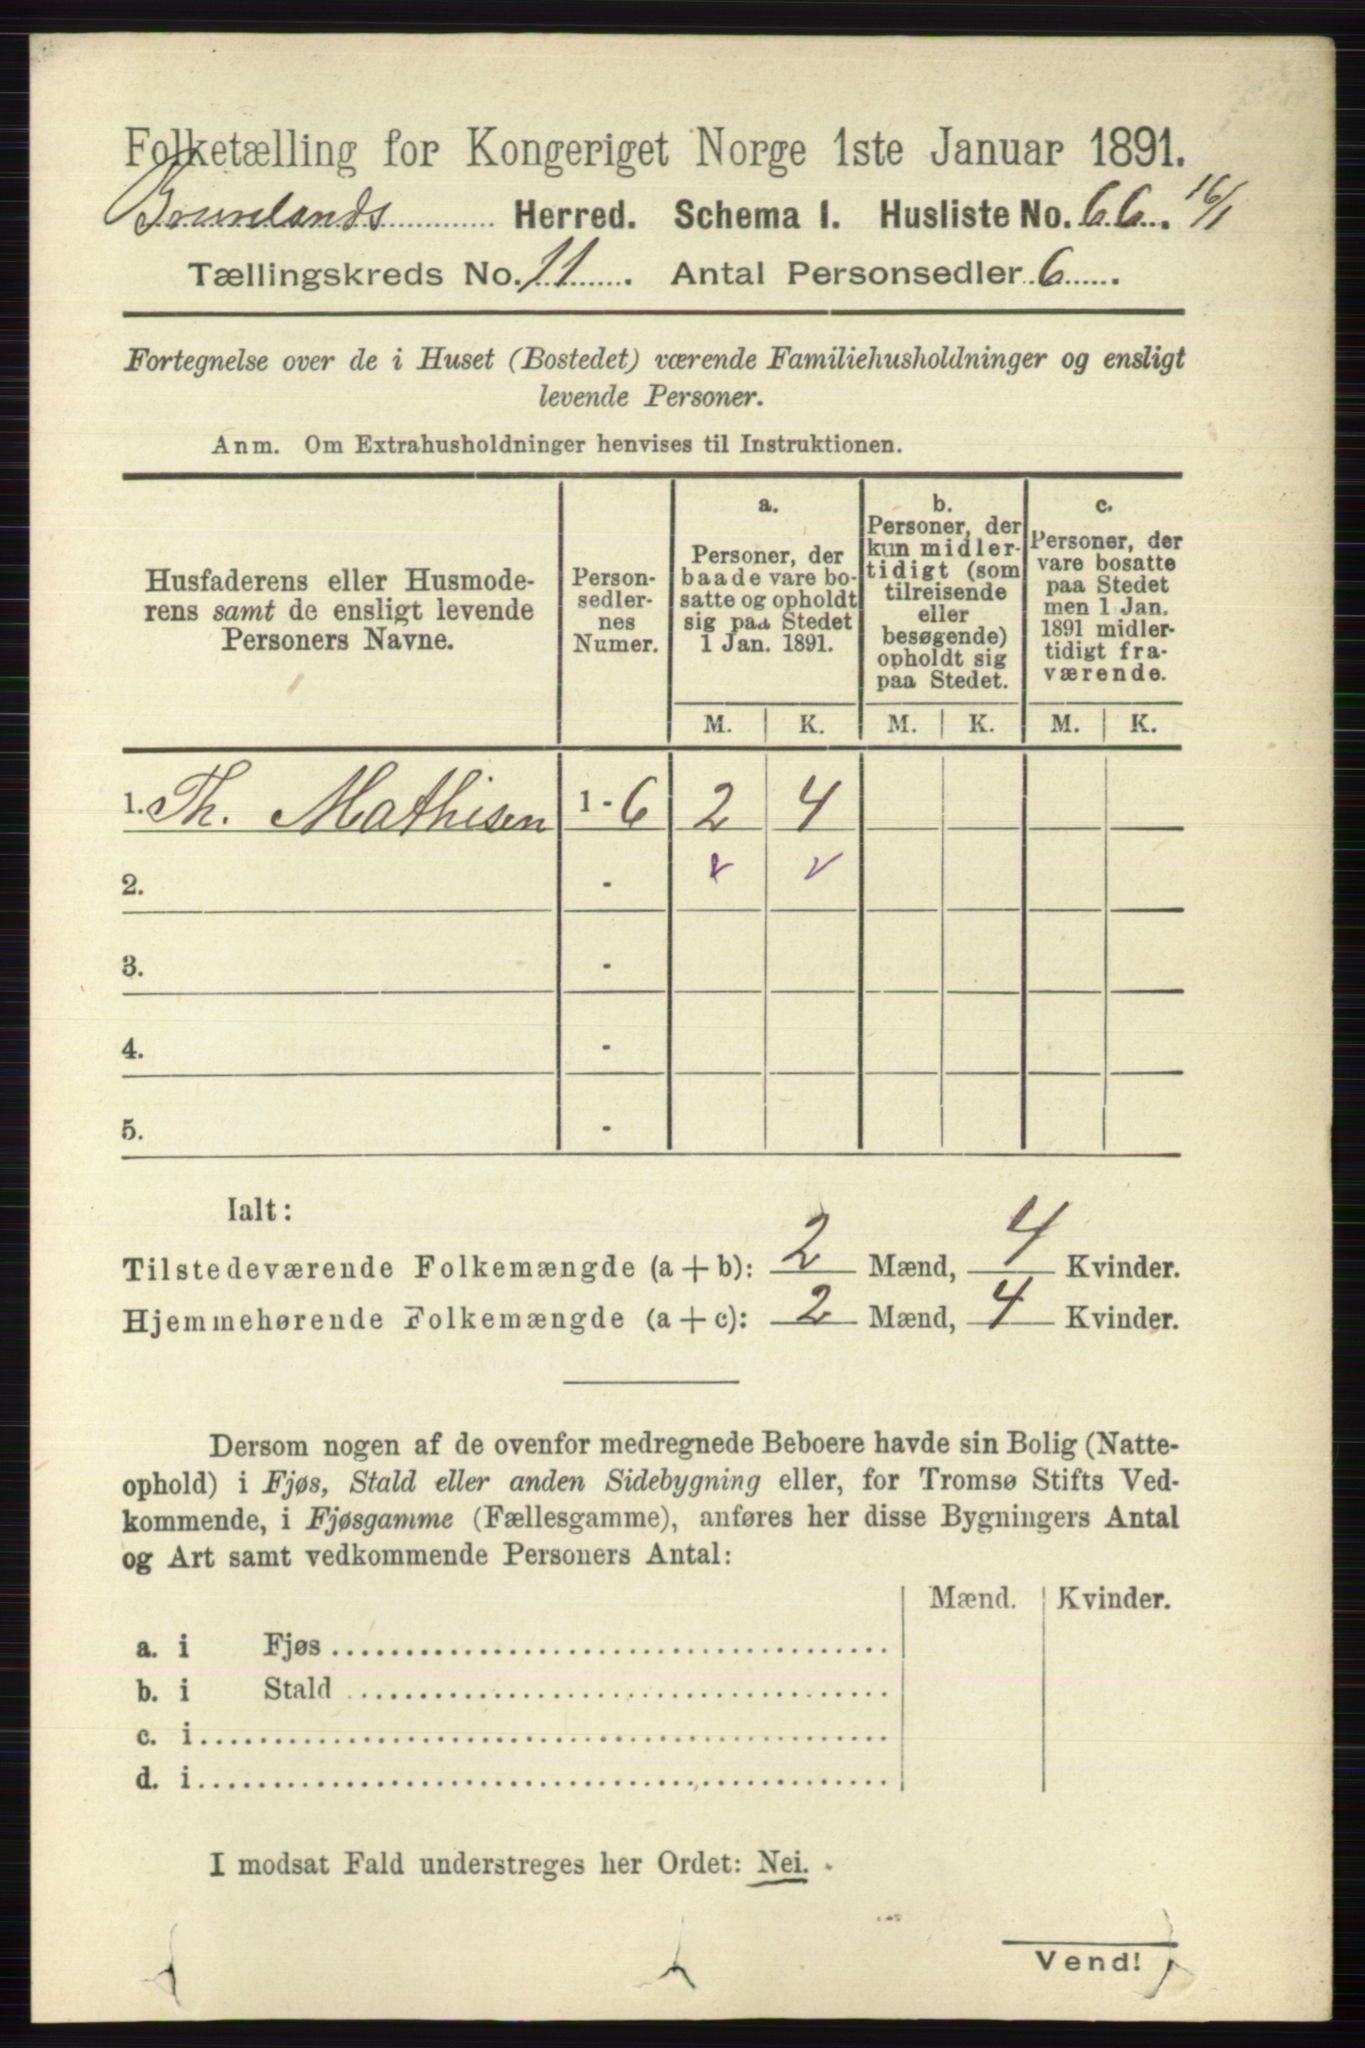 Folketælling for Kongeriget Norge 1ste Januar 1891.
Brunlands Herred. Schema 1. Husliste No. 66. 16/1
Tællingskreds No. 11. Antal Personsedler 6.
Fortegnelse over de i Huset (Bostedet) værende Familiehusholdninger og ensligt
levende Personer.
Anm. Om Extrahusholdninger henvises til Instruktionen.
Husfaderens eller Husmode-
rens samt de ensligt levende
Personers Navne.
Person-
sedler-
nes
Numer.
a.
Personer, der
baade vare bo-
satte og opholdt
sig paa Stedet
1 Jan. 1891.
b.
Personer, der
kun midler-
tidigt (som
tilreisende
eller
besøgende)
opholdt sig
paa Stedet.
c.
Personer, der
vare bosatte
paa Stedet
men 1 Jan.
1891 midler-
tidigt fra-
værende.
M. K. M. K. M. K.
1. Th. Mathisen 1 - 6 2 4
2. -
3. -
4. -
5. -
Ialt:
Tilstedeværende Folkemængde (a + b): 2 Mænd, 4 Kvinder.
Hjemmehørende Folkemængde (a + c): 2 Mænd, 4 Kvinder.
Dersom nogen af de ovenfor medregnede Beboere havde sin Bolig (Natte-
ophold) i Fjøs, Stald eller anden Sidebygning eller, for Tromsø Stifts Ved-
kommende, i Fjøsgamme (Fællesgamme), anføres her disse Bygningers Antal
og Art samt vedkommende Personers Antal:
Mænd. Kvinder.
a. i Fjøs
b. i Stald
c. i
d. i
I modsat Fald understreges her Ordet: Nei.
Vend!